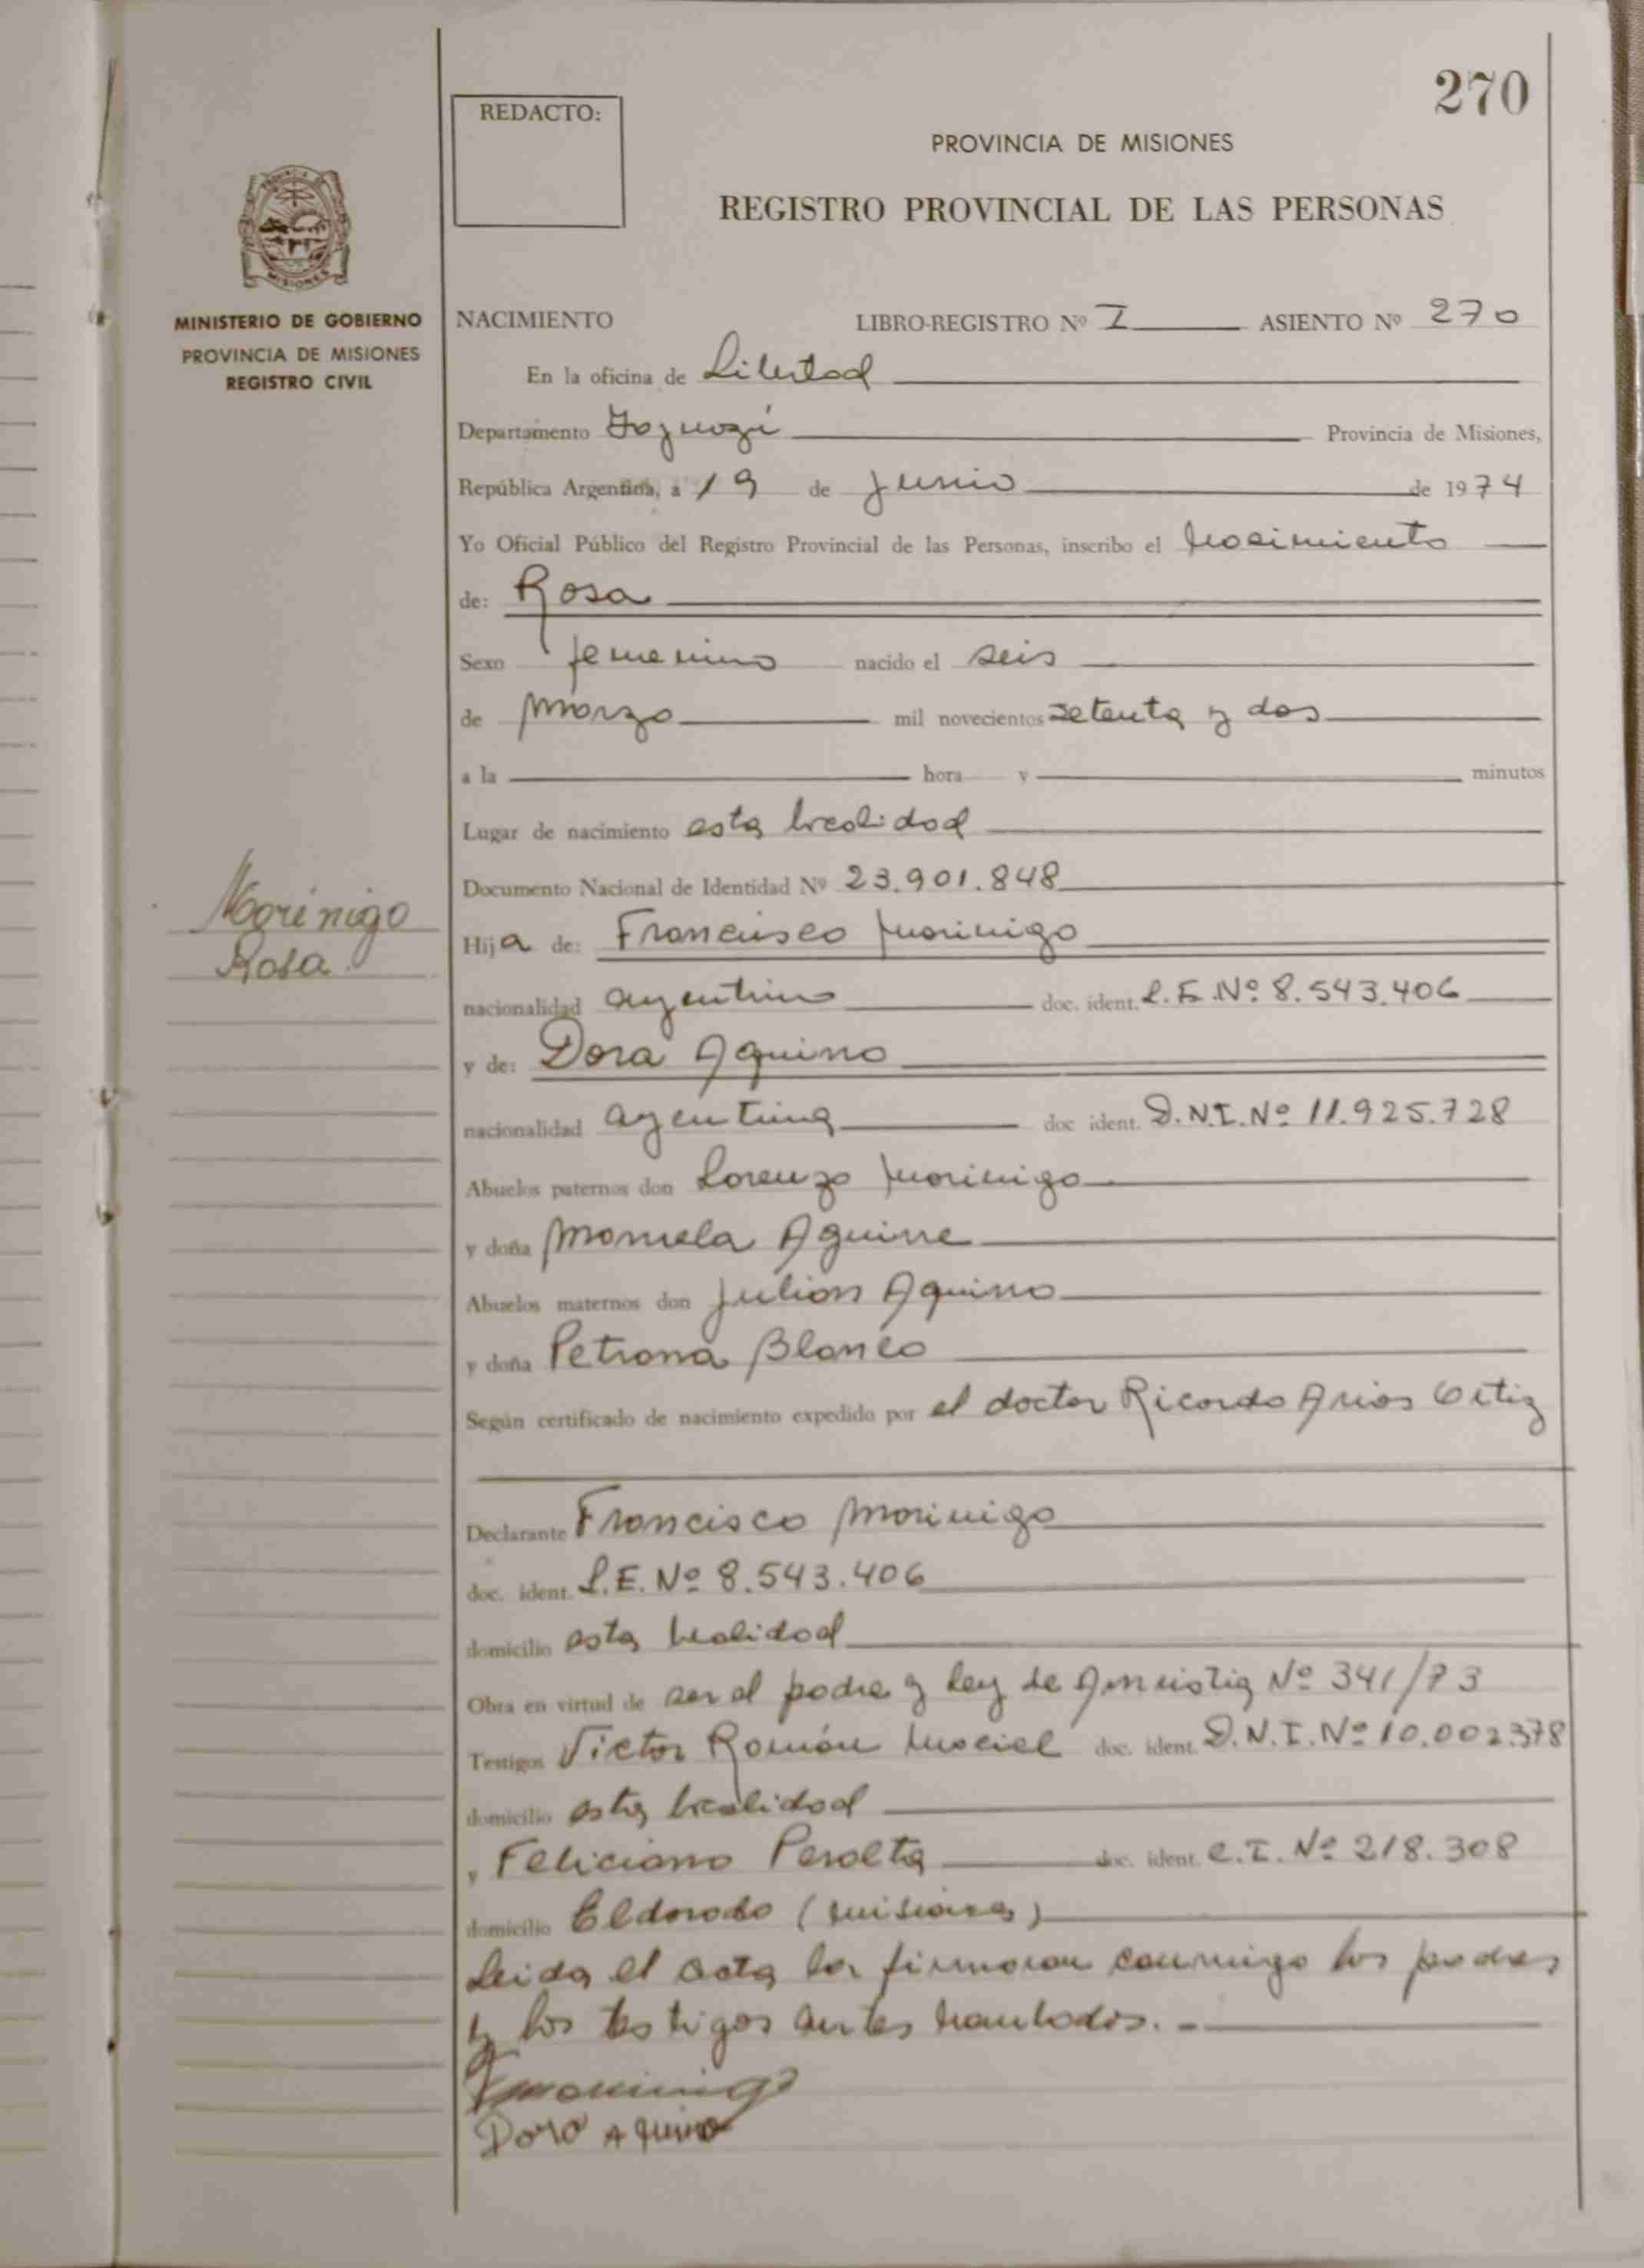 270
REDACTO:
PROVINCIA DE MISIONES
REGISTRO PROVINCIAL DE LAS PERSONAS
MISIONES
MINISTERIO DE GOBIERNO
PROVINCIA DE MISIONES
REGISTRO CIVIL
NACIMIENTO LIBRO-REGISTRO Nº I ASIENTO Nº 270
En la oficina de Libertad
Departamento Iguazú Provincia de Misiones,
República Argentina, a 19 de Junio de 1974
Yo Oficial Público del Registro Provincial de las Personas, inscribo el nacimiento
de: Rosa
Sexo femenino nacido el seis
de marzo mil novecientos setenta y dos
a la hora y minutos
Lugar de nacimiento esta localidad
Documento Nacional de Identidad Nº 23.901.848
Morinigo
Rosa
Hija de: Francisco Morinigo
nacionalidad argentino doc. ident. L.E. Nº 8.543.406
y de: Dora Aquino
nacionalidad argentina doc ident. D.N.I. Nº 11.925.728
Abuelos paternos don Lorenzo Morinigo
y doña Manuela Aguirre
Abuelos maternos don Julián Aquino
y doña Petrona Blanco
Según certificado de nacimiento expedido por el doctor Ricardo Arias Ortiz
Declarante Francisco Morinigo
doc. ident. L.E. Nº 8.543.406
domicilio esta localidad
Obra en virtud de ser el padre y ley de Amnistia Nº 341/73
Testigos Victor Román Maciel doc. ident. D.N.I. Nº 10.002.378
domicilio esta localidad
y Feliciano Peralta doc. ident. C.I. Nº 218.308
domicilio Eldorado (Misiones)
Leida el acta la firmaron conmigo los padres
y los testigos antes nombrados. -
Morinigo
Dora Aquino